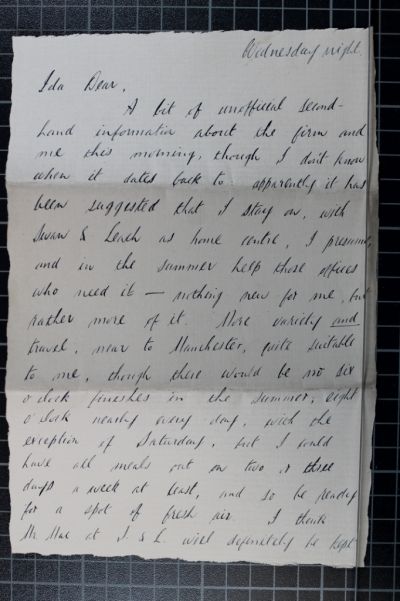 Wednesday night.
Ida Dear,
A bit of unofficial second-
hand information about the firm and
me this morning, though I don't know
when it dates back to. apparently it has
been suggested that I stay on, with
Swan & Leach as home centre, I presume,
and in the summer help those offices
who need it — nothing new for me, but
rather more of it. More variety and
travel, near to Manchester, quite suitable
to me, though there would be no six
o'clock finishes in the summer, eight
o'clock nearly every day, with the
exception of Saturday, but I could
have all meals out on two or three
days a week at least, and so be ready
for a spot of fresh air. I think
Mr Mac at S. & L. will definitely be kept